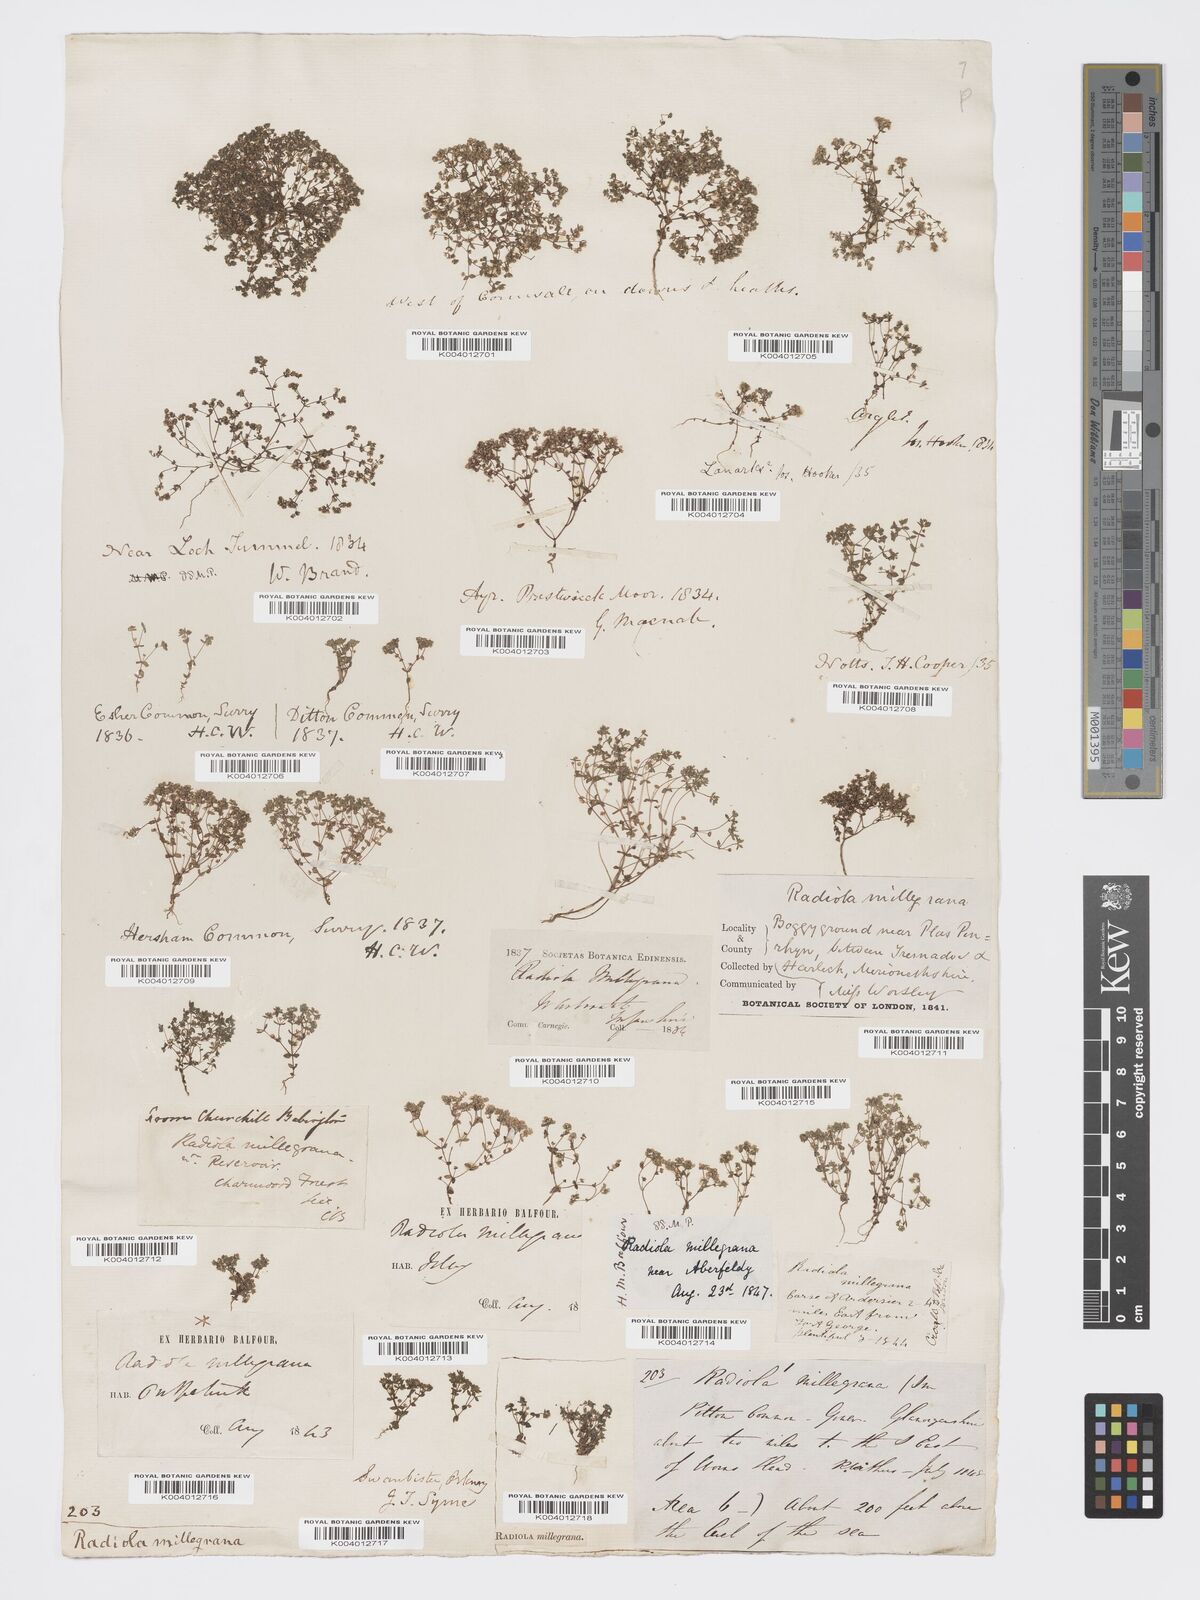 7
P
West of Cornwall, on downs & heaths.
ROYAL BOTANIC GARDENS KEW
K004012701
ROYAL BOTANIC GARDENS KEW
K004012705
Jos. Hooker /1834
Lanark Jos. Hooker /35
ROYAL BOTANIC GARDENS KEW
K004012704
Near Loch Tummel. 1834
88.M.P. W. Brand.
ROYAL BOTANIC GARDENS KEW
K004012702
Ayr. Prestwick Moor. 1834.
G. Macnab.
ROYAL BOTANIC GARDENS KEW
K004012703
Notts. T.H. Cooper /35
ROYAL BOTANIC GARDENS KEW
K004012708
Esher Common, Surry
1836. H.C.W.
Ditton Common, Surry
1837. H.C.W.
ROYAL BOTANIC GARDENS KEW
K004012706
ROYAL BOTANIC GARDENS KEW
K004012707
Hersham Common, Surry. 1837.
H.C.W.
ROYAL BOTANIC GARDENS KEW
K004012709
1837 SOCIETAS BOTANICA EDINENSIS.
Radiola Millegrana.
Comm. Carnegie. Coll. 1836
ROYAL BOTANIC GARDENS KEW
K004012710
Radiola millegrana
Locality & County Boggy ground near Plas Pen=
rhyn, between Tremadoc &
Collected by Harlech, Merionethshire.
Communicated by Miss Worsley
BOTANICAL SOCIETY OF LONDON, 1841.
ROYAL BOTANIC GARDENS KEW
K004012711
From Churchill Babington
Radiola millegrana
nr. Reservoir.
Charnwood Forest
Leic
CB
ROYAL BOTANIC GARDENS KEW
K004012712
EX HERBARIO BALFOUR.
Radiola millegrana
HAB. Islay
Coll. Aug. 18
ROYAL BOTANIC GARDENS KEW
K004012713
88.M.P.
Radiola millegrana
near Aberfeldy
Aug. 23d 1847.
H. M. Balfour
ROYAL BOTANIC GARDENS KEW
K004012714
ROYAL BOTANIC GARDENS KEW
K004012715
Radiola
millegrana
Carse of Ardersier 2
miles East from
Fort George.
plentiful 1844
*
EX HERBARIO BALFOUR.
Radiola millegrana
HAB.
Coll. Aug 1843
ROYAL BOTANIC GARDENS KEW
K004012716
Swanbister, Orkney
J.T. Syme
ROYAL BOTANIC GARDENS KEW
K004012717
ROYAL BOTANIC GARDENS KEW
K004012718
RADIOLA millegrana.
203 Radiola millegrana (Sm
Pitton Common - Gower. Glamorganshire
about two miles to the S East
of Worms Head. July 1848
Area 6 -) About 200 feet above
the level of the sea
203
Radiola millegrana
inches
centimeters
Don Williams
Density
M001395
Kew
Royal Botanic Gardens
0 1 2 3 4 5 6 7 8 9 10
cm
copyright reserved